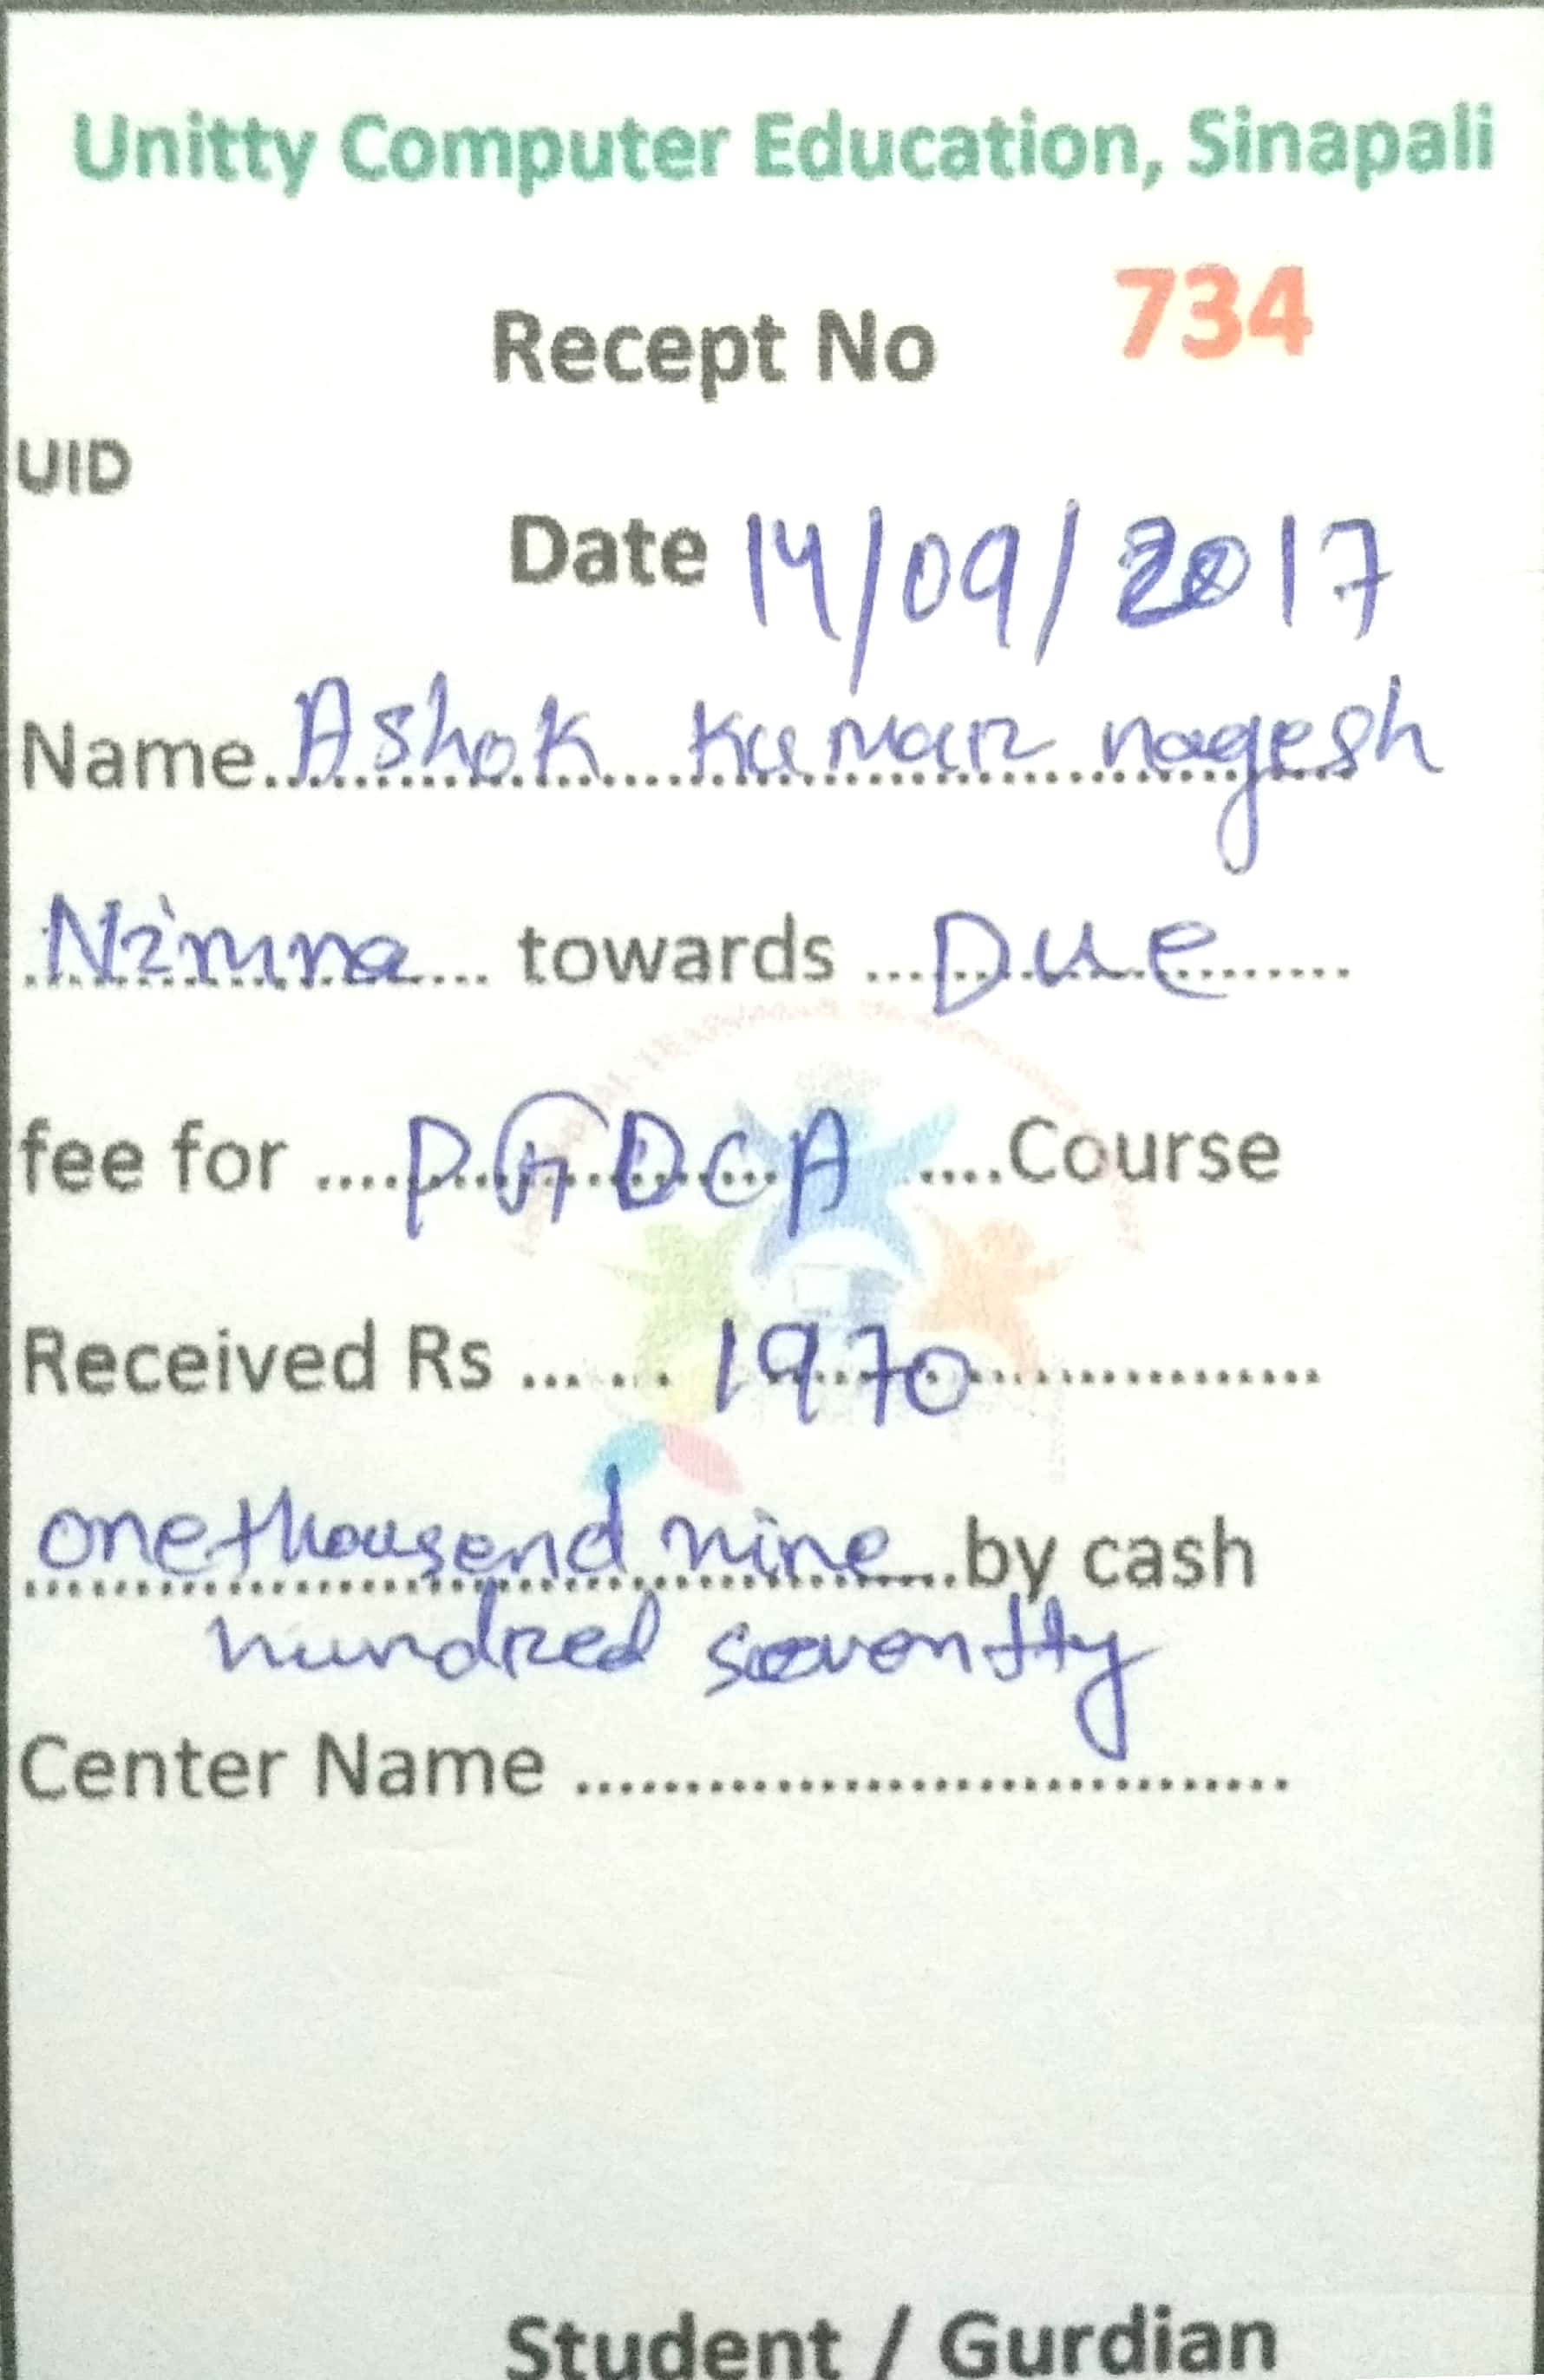 Unitty Computer Education, Sinapali
Recept No 734
UID
Date 14/09/2017
Name Ashok Kumar nagesh
Nimna towards Due
fee for PGDCA Course
Received Rs 1970
one thousend nine by cash
hundred seventty
Center Name
Student / Gurdian